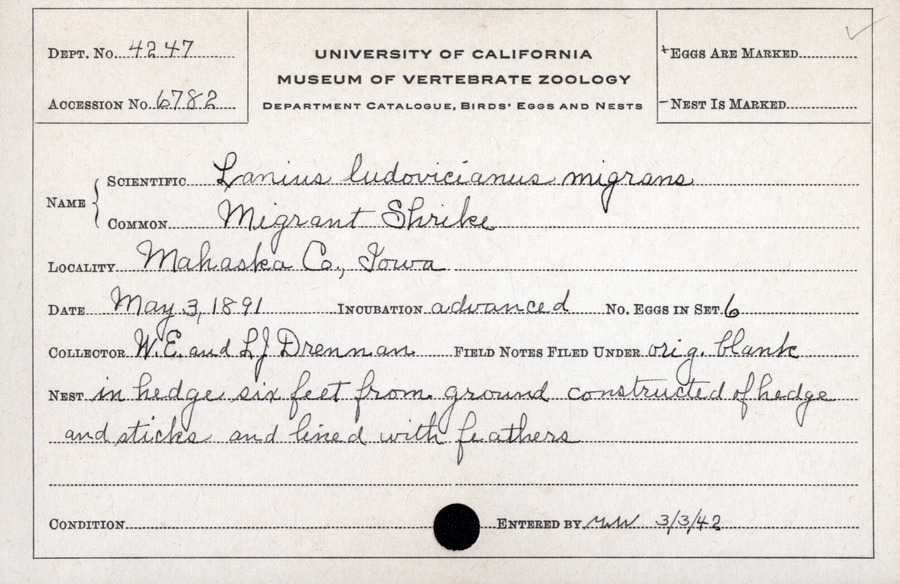 DEPT. No. 4247
ACCESSION No. 6782
UNIVERSITY OF CALIFORNIA
MUSEUM OF VERTEBRATE ZOOLOGY
DEPARTMENT CATALOGUE, BIRDS' EGGS AND NESTS
+ EGGS ARE MARKED
- NEST IS MARKED
NAME
SCIENTIFIC Lanius ludovicianus migrans
COMMON Migrant Shrike
LOCALITY Mahaska Co., Iowa
DATE May 3, 1891 INCUBATION advanced No. EGGS IN SET 6
COLLECTOR W.E. and L.J Drennan FIELD NOTES FILED UNDER orig. blank
NEST in hedge six feet from ground constructed of hedge
and sticks and lined with feathers
CONDITION ENTERED BY 3/3/42